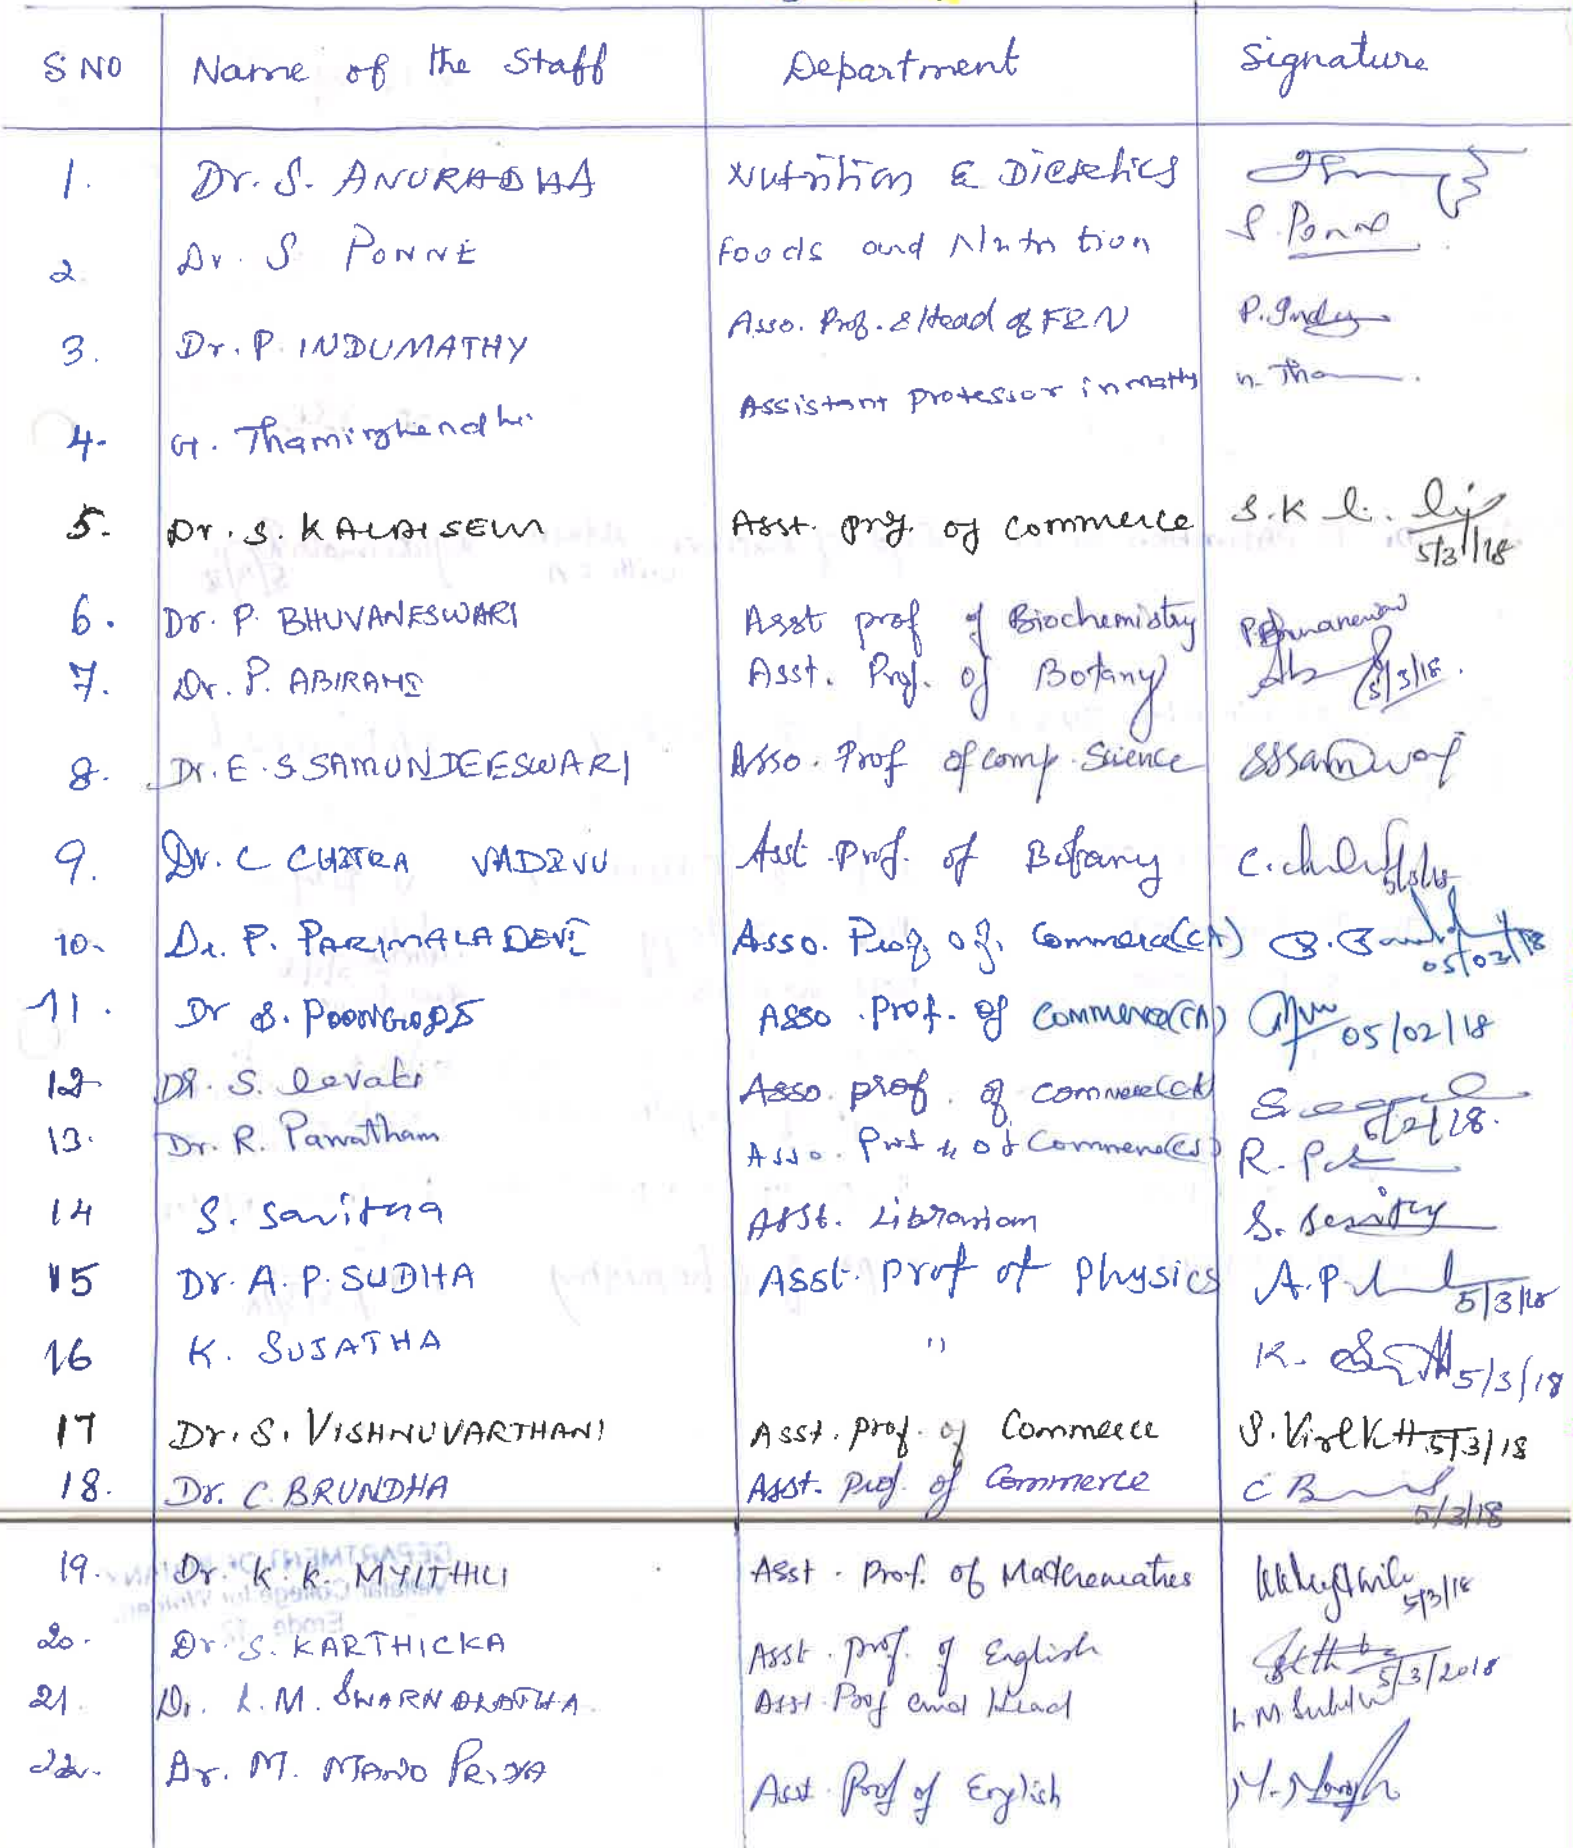 S NO Name of the Staff Department Signature
1. Dr. S. ANURADHA Nutrition & Dietetics
2. Dr. S PONNE Foods and Nutrition S. Ponne
3. Dr. P. INDUMATHY Asso. Prof. & Head of F&N P. Indu
4. G. Thamizhendhi Assistant professor in maths
5. Dr. S. KALAISELVI Asst. prof. of commerce S.K 5/3/18
6. Dr. P. BHUVANESWARI Asst prof of Biochemistry P. Bhuvaneswari
7. Dr. P. ABIRAMI Asst. Prof. of Botany 5/3/18.
8. Dr. E. S SAMUNDEESWARI Asso. Prof of comp. Science
9. Dr. C CHITRA VADIVU Asst. Prof. of Botany C. 5/3/18
10. Dr. P. PARIMALA DEVI Asso. Prof. of. Commerce(CA) 05/03/18
11. Dr S. POONGODI Asso. Prof. of commerce(CA) 05/02/18
12 Dr. S. Revathi Asso. prof. of commerce(CA) 5/2/18.
13. Dr. R. Parvatham Asso. Prof of Commerce(CS) R.
14 S. Savithra Asst. Librarian S.
15 Dr. A. P. SUDHA Asst. Prof of Physics A.P. 5/3/18
16 K. SUJATHA " K. 5/3/18
17 Dr. S. VISHNUVARTHANI Asst. prof. of Commerce S. 5/3/18
18. Dr. C. BRUNDHA Asst. Prof. of Commerce C B 5/3/18
19. Dr. K. K. MYITHILI Asst. Prof. of Mathematics 5/3/18
20. Dr. S. KARTHICKA Asst. prof. of English 5/3/2018
21. Dr. L. M. SWARNALATHA. Asst. Prof and Head L M
22. Dr. M. MANO PRIYA Asst. Prof of English M.